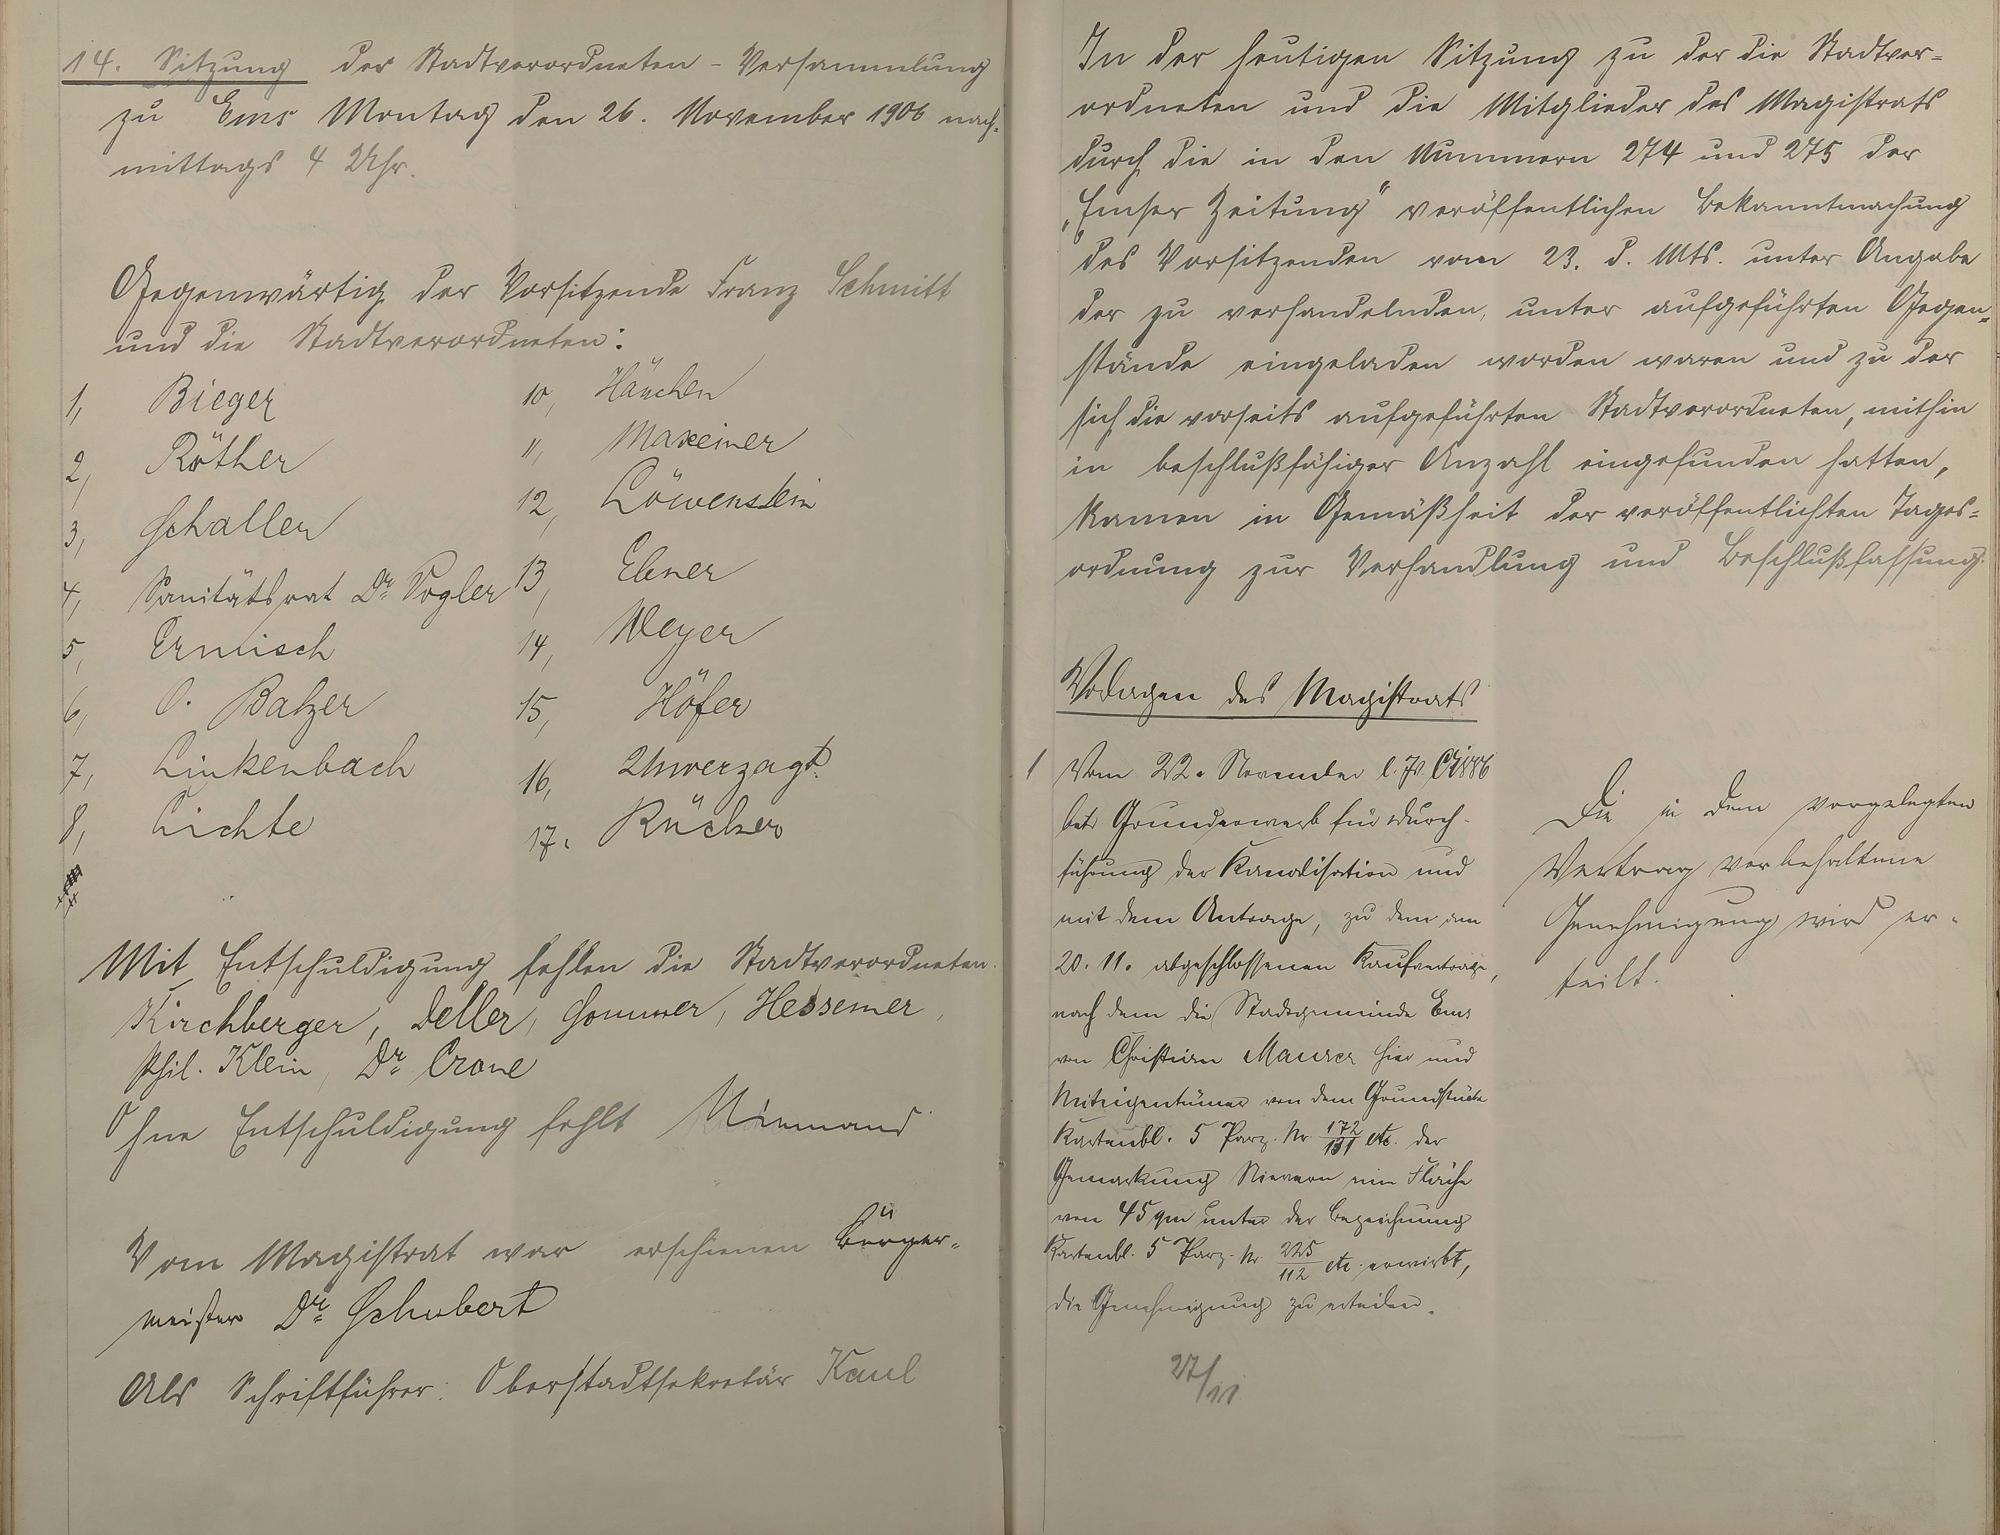 14. Sitzung der Stadtverordneten-Versammlung
zu Ems Montag den 26. November 1906 nach-
mittags 4 Uhr.
Gegenwärtig der Vorsitzende Franz Schmitt
und die Stadtverordneten:
1, Bieger
2, Röther
3, Schaller
4, Sanitätsrat Dr. Vogler
5, Ermisch
6, O. Balzer
7, Linkenbach
8, Lichte
10, Hänchen
11, Maxeiner
12, Löwenstein
13, Ebner
14, Weyer
15, Höfer
16, Unverzagt
17. Rücker
Mit Entschuldigung fehlen die Stadtverordneten
Kirchberger, Deller, Sommer, Hessemer,
Phil. Klein, Dr. Crone
Ohne Entschuldigung fehlt Niemand
Vom Magistrat war erschienen Bürger-
meister Dr. Schubert
Als Schriftführer: Oberstadtsekretär Kaul
In der heutigen Sitzung zu der die Stadtver-
ordneten und die Mitglieder des Magistrats
durch die in den Nummern 274 und 275 der
„Emser Zeitung" veröffentlichen Bekanntmachung
des Vorsitzenden vom 23. d. Mts. unter Angabe
der zu verhandelnden, unter aufgeführten Gegen-
stände eingeladen worden waren und zu der
sich die vorseits aufgeführten Stadtverordneten, mithin
in beschlußfähiger Anzahl eingefunden hatten,
kamen in Gemäßheit der veröffentlichten Tages-
ordnung zur Verhandlung und Beschlußfassung.
Vorlagen des Magistrats
1 Vom 22. November l. Js.
betr. Grunderwerb für Durch-
führung der Kanalisation und
mit dem Antrage, zu dem am
20. 11. abgeschlossenen Kaufvertrage,
nach dem die Stadtgemeinde Ems
von Christian Maurer hier und
Miteigentümer von dem Grundstücke
Kartenbl. 5 Parz. Nr. 172/131 etc. der
Gemarkung Nievern eine Fläche
von 45 qm unter der Bezeichnung
Kartenbl. 5 Parz. Nr. 225/112 etc. erwirbt,
die Genehmigung zu erteilen.
27/11
Die in dem vorgelegten
Vertrag vorbehaltene
Genehmigung wird er-
teilt.